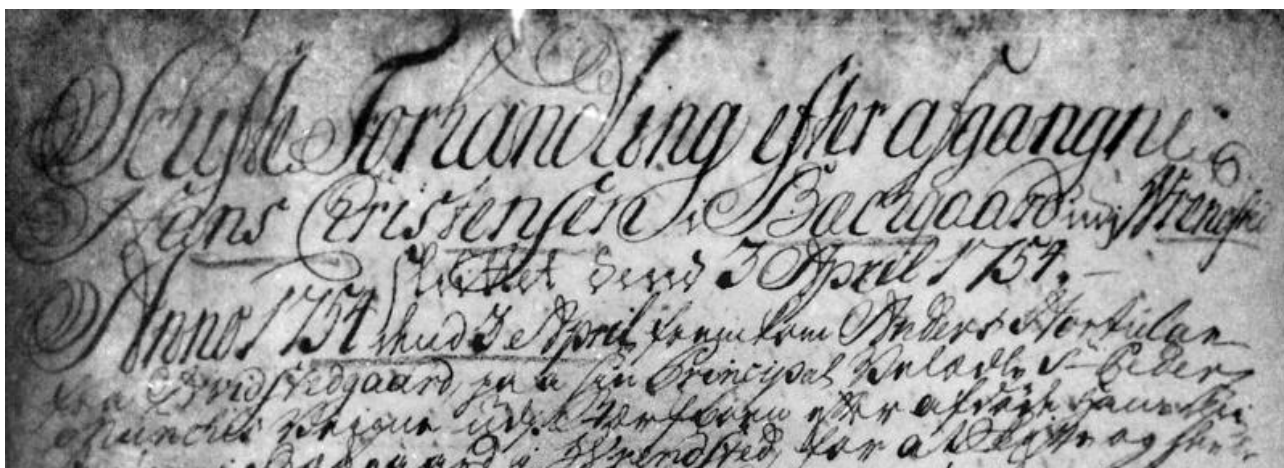 Skifte Forhandling efter afgangne
Hans Christensen i Bæchgaard udj Wrengsted
Sluttet dend 3 April 1754.
Anno 1754 dend 3 April fremkom Anders Hortulan
fra Hvidstedgaard paa sin Principal Velædle Sr Peder
Munches Veigne udj Stærfboen efter afdøde Hans
i Wrendsted, for at og